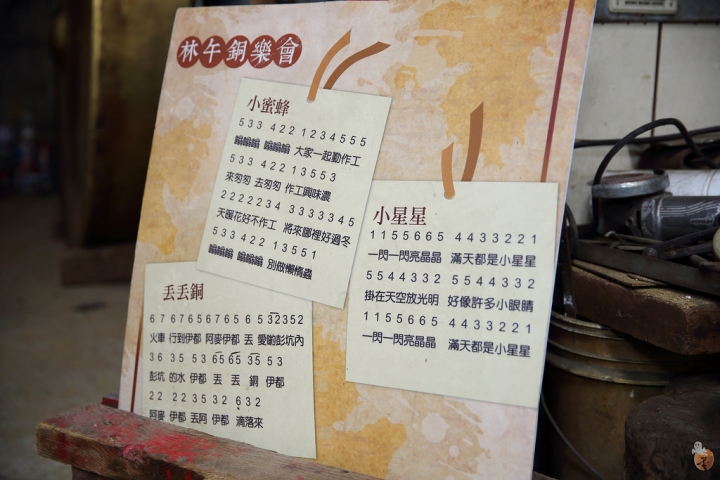 林午銅樂會
小蜜蜂
5 3 3 4 2 2 1 2 3 4 5 5 5
嗡嗡嗡 嗡嗡嗡 大家一起勤作工
5 3 3 4 2 2 1 3 5 5 3
來匆匆 去匆匆 作工興味濃
2 2 2 2 2 3 4 3 3 3 3 3 4 5
天暖花好不作工 將來哪裡好過冬
5 3 3 4 2 2 1 3 5 5 1
嗡嗡嗡 嗡嗡嗡 別做懶惰蟲
小星星
1 1 5 5 6 6 5 4 4 3 3 2 2 1
一閃一閃亮晶晶 滿天都是小星星
5 5 4 4 3 3 2 5 5 4 4 3 3 2
掛在天空放光明 好像許多小眼睛
1 1 5 5 6 6 5 4 4 3 3 2 2 1
一閃一閃亮晶晶 滿天都是小星星
丟丟銅
6 7 6 7 6 7 6 5 6 7 6 5 6 5 3 2 3 5 2
火車 行到伊都 阿麥伊都 丟 愛喲彭坑內
3 6 3 5 5 3 6 5 6 5 3 5 5 3
彭坑 的水 伊都 丟 丟 銅 伊都
2 2 2 2 3 5 3 2 6 3 2
阿麥 伊都 丟阿 伊都 滴落來